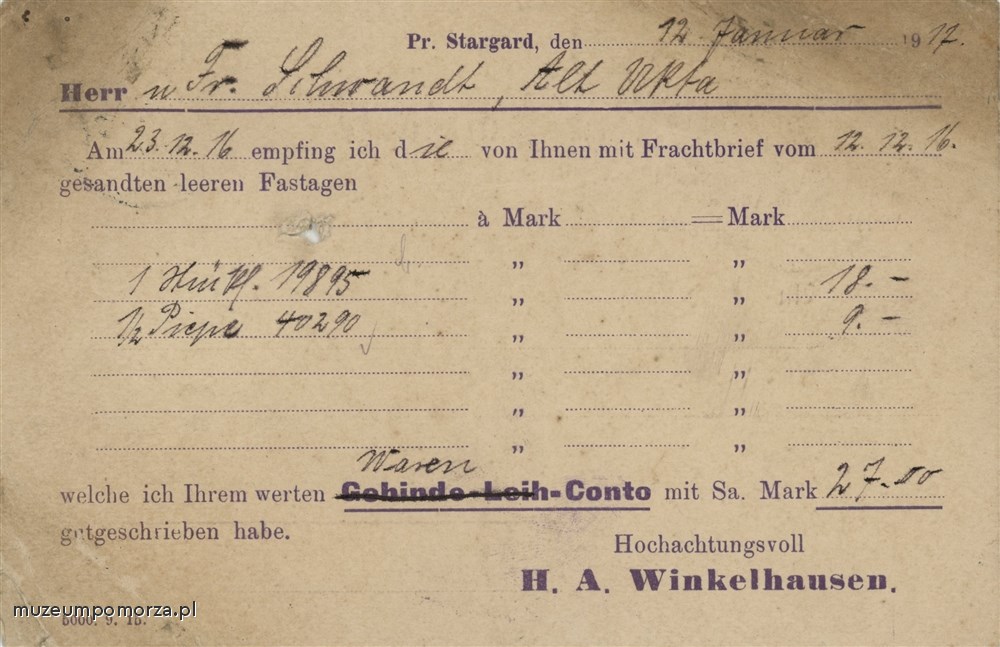 Pr. Stargard, den 12. Januar 1917.
Herrn Fr. Schwandt, Alt Ukta
Am 23.12.16 empfing ich die von Ihnen mit Frachtbrief vom 12.12.16.
gesandten leeren Fastagen
à Mark = Mark
„ „
1 Stückf. 19895 „ „ 18.-
1/2 Piepe 40290 „ „ 9.-
„ „
„ „
„ „
Waren
welche ich Ihrem werten Gebinde-Leih-Conto mit Sa. Mark 27.00
gutgeschrieben habe.
Hochachtungsvoll
H. A. Winkelhausen.
muzeumpomorza.pl
5000. 9. 15.